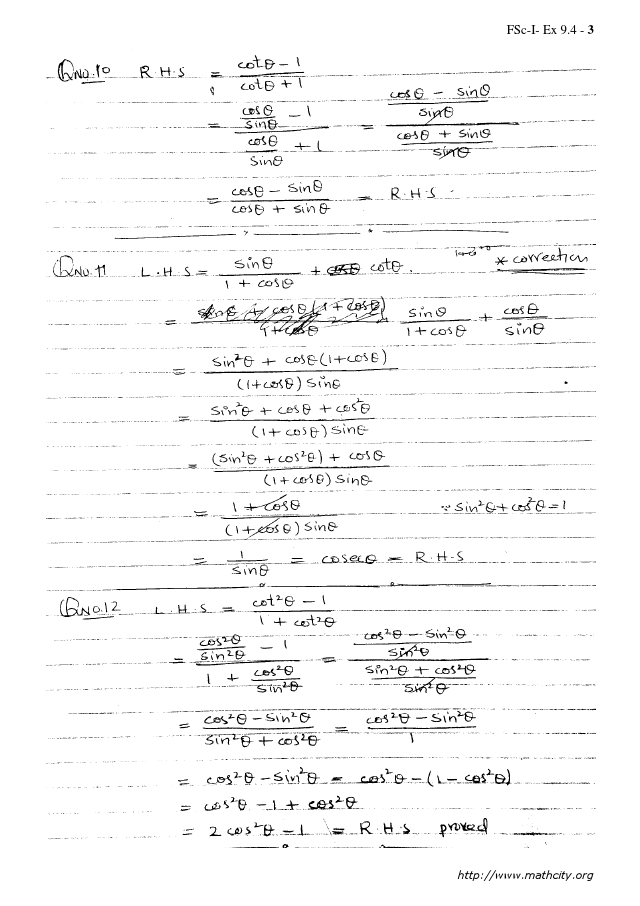 FSc-I- Ex 9.4 - 3
QNO.10 R.H.S = (cotθ - 1)/(cotθ + 1)
= (cosθ/sinθ - 1)/(cosθ/sinθ + 1) = ((cosθ - sinθ)/sinθ)/((cosθ + sinθ)/sinθ)
= (cosθ - sinθ)/(cosθ + sinθ) = R.H.S
QNO.11 L.H.S = sinθ/(1 + cosθ) + cotθ. * correction
= sinθ/(1+cosθ) + cosθ/sinθ
= (sin²θ + cosθ(1+cosθ))/((1+cosθ) sinθ)
= (sin²θ + cosθ + cos²θ)/((1+cosθ) sinθ)
= ((sin²θ + cos²θ) + cosθ)/((1+cosθ) sinθ)
= (1+cosθ)/((1+cosθ) sinθ) ∵ sin²θ+cos²θ=1
= 1/sinθ = cosecθ = R.H.S
QNO.12 L.H.S = (cot²θ - 1)/(1 + cot²θ)
= (cos²θ/sin²θ - 1)/(1 + cos²θ/sin²θ) = ((cos²θ - sin²θ)/sin²θ)/((sin²θ + cos²θ)/sin²θ)
= (cos²θ - sin²θ)/(sin²θ + cos²θ) = (cos²θ - sin²θ)/1
= cos²θ - sin²θ = cos²θ - (1 - cos²θ)
= cos²θ - 1 + cos²θ
= 2cos²θ - 1 = R.H.S proved
http://www.mathcity.org